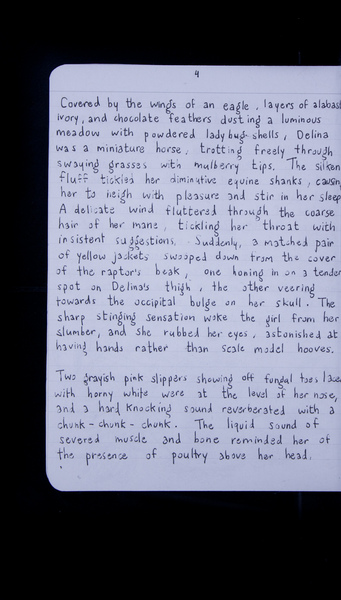 4
Covered by the wings of an eagle, layers of alabast
ivory, and chocolate feathers dusting a luminous
meadow with powdered ladybug shells, Delina
was a miniature horse, trotting freely through
swaying grasses with mulberry tips. The silken
fluff tickled her diminutive equine shanks, causing
her to neigh with pleasure and stir in her sleep.
A delicate wind fluttered through the coarse
hair of her mane, tickling her throat with
insistent suggestions. Suddenly, a matched pair
of yellow jackets swooped down from the cover
of the raptor's beak, one honing in on a tender
spot on Delina's thigh, the other veering
towards the occipital bulge on her skull. The
sharp stinging sensation woke the girl from her
slumber, and she rubbed her eyes, astonished at
having hands rather than scale model hooves.
Two grayish pink slippers showing off fungal toes lace
with horny white were at the level of her nose,
and a hard knocking sound reverberated with a
chunk-chunk-chunk. The liquid sound of
severed muscle and bone reminded her of
the presence of poultry above her head.